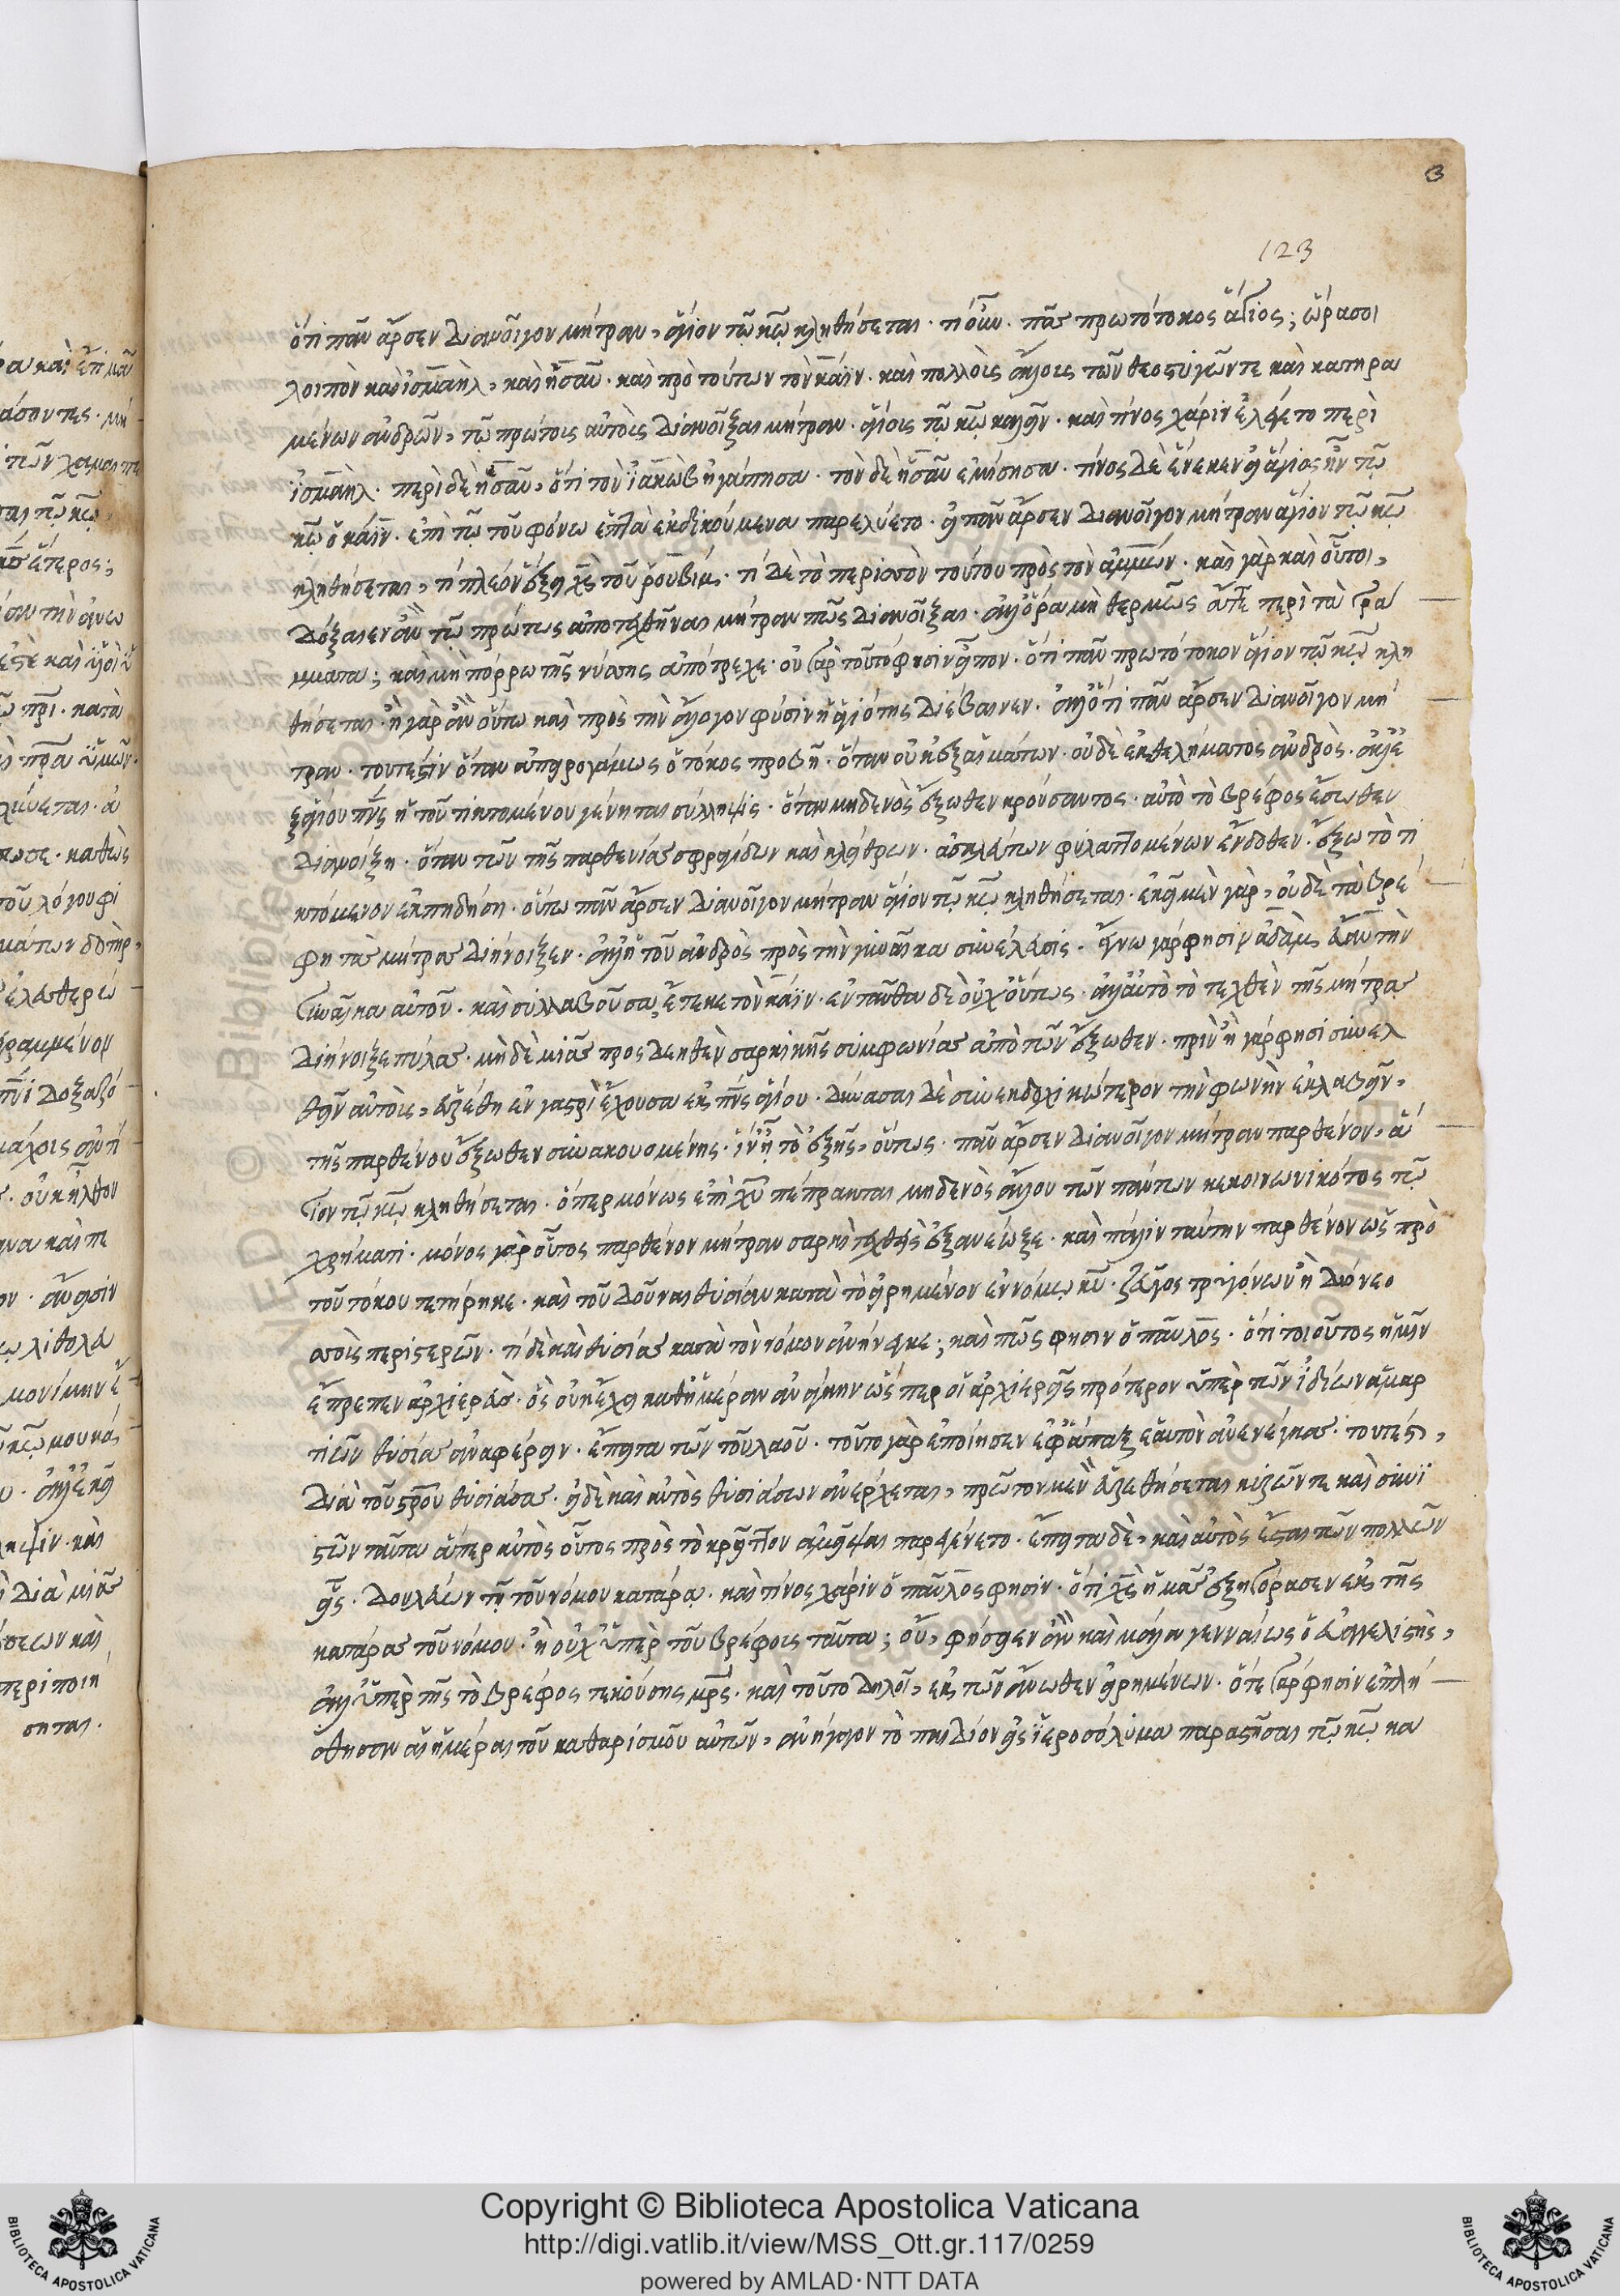 3
123
ὅτι πᾶν ἄρσεν διανοῖγον μήτραν, ἅγιον τῶ κ̅ω̅ κληθήσεται· τί οὖν· πᾶς πρωτότοκος ἅγιος; ὥρα σοι
λοιπὸν καὶ ἰσμαὴλ, καὶ ἠσαῦ· καὶ πρὸ τούτων τὸν κάϊν· καὶ πολλοῖς ἄλλοις τῶν θεοστυγῶν τε καὶ κατηρα
μένων ἀνδρῶν, τῶ πρώτοις αὐτοῖς διανοῖξαι μήτραν· ἁγίοις τῶ κ̅ω̅ καλεῖν· καὶ τίνος χάριν ἐλέγετο περὶ
ἰσμαὴλ· περὶ δὲ ἠσαῦ, ὅτι τὸν ἰακὼβ ἠγάπησα· τὸν δὲ ἠσαῦ ἐμίσησα· τίνος δὲ ἕνεκεν εἰ ἅγιος ἦν τῶ
κ̅ω̅ ὁ κάϊν· ἐπὶ τῶ τοῦ φόνω ἑπτὰ ἐκδικούμενα παρελύετο· εἰ πᾶν ἄρσεν διανοῖγον μήτραν ἅγιον τῶ κ̅ω̅
κληθήσεται, τί πλέον ἕξει χ̅ς̅ τοῦ ῥουβίμ· τί δὲ τὸ περισσὸν τούτου πρὸς τὸν ἀμμών· καὶ γὰρ καὶ οὗτοι,
δόξαιεν ἂν τῶ πρώτως ἀποτεχθῆναι μήτραν πῶς διανοῖξαι· ἀλλ' ὅρα μὴ θερμῶς ἅπτε περὶ τὰ γρά
μματα; καὶ μὴ πόρρω τῆς νύσσης ἀπότρεχε· οὐ γὰρ τοῦτό φησιν εἶπον· ὅτι πᾶν πρωτότοκον ἅγιον τῶ κ̅ω̅ κλη
θήσεται· ἢ γὰρ ἂν οὕτω καὶ πρὸς τὴν ἄλογον φύσιν ἡ ἁγιότης διέβαινεν· ἀλλ' ὅτι πᾶν ἄρσεν διανοῖγον μή
τραν· τουτέστιν ὅταν ἀπειρογάμως ὁ τόκος προβῆ· ὅταν οὐκ ἐξ αἱμάτων· οὐδὲ ἐκ θελήματος ἀνδρὸς· ἀλλ' ἐ
ξ ἁγίου π̅ν̅ς̅ ἡ τοῦ τικτομένου γένηται σύλληψις· ὅταν μηδενὸς ἔξωθεν κρούσαντος· αὐτὸ τὸ βρέφος ἔσωθεν
διανοίξη· ὅταν τῶν τῆς παρθενίας σφραγίδων καὶ κλείθρων· ἀσαλεύτων φυλαττομένων ἔνδοθεν· ἔξω τὸ τι
κτόμενον ἐκπηδήση· οὕτω πᾶν ἄρσεν διανοῖγον μήτραν ἅγιον τῶ κ̅ω̅ κληθήσεται· ἐκεῖ μὲν γὰρ, οὐδὲ τὰ βρέ
φη τὰς μήτρας διήνοιξεν· ἀλλ' ἡ τοῦ ἀνδρὸς πρὸς τὴν γυναῖκα συνέλευσις· ἔγνω γάρ φησιν ἀδὰμ εὔαν τὴν
γυναῖκα αὐτοῦ· καὶ συλλαβοῦσα, ἔτεκε τὸν κάϊν· ἐνταῦθα δὲ οὐχ οὕτως· ἀλλ' αὐτὸ τὸ τεχθὲν τῆς μήτρας
διήνοιξε πύλας· μὴ δὲ μιᾶς προσδεηθὲν σαρκικῆς συμφωνίας ἀπὸ τῶν ἔξωθεν· πρὶν ἢ γάρ φησι συνελ
θεῖν αὐτοὺς, εὑρέθη ἐν γαστρὶ ἔχουσα ἐκ π̅ν̅ς̅ ἁγίου· δύνασαι δὲ συνεκδοχικώτερον τὴν φωνὴν ἐκλαβεῖν,
τῆς παρθένου ἔξωθεν συνακουομένης· ἵν' ἦ τὸ ἑξῆς, οὕτως· πᾶν ἄρσεν διανοῖγον μήτραν παρθένον, ἅ
γιον τῶ κ̅ω̅ κληθήσεται· ὅπερ μόνως ἐπὶ χ̅υ̅ πέπρακται μηδενὸς ἄλλου τῶν πάντων κεκοινωνικότος τῶ
χρήματι· μόνος γὰρ οὗτος παρθένον μήτραν σαρκὶ τεχθεὶς ἐξανέωξε· καὶ πάλιν ταύτην παρθένον ὡς πρὸ
τοῦ τόκου τετήρηκε· καὶ τοῦ δοῦναι θυσίαν κατὰ τὸ εἰρημένον ἐν νόμω κ̅υ̅· ζεῦγος τρυγόνων ἢ δύο νεο
σσοὺς περιστερῶν· τί δὲ καὶ θυσίας κατὰ τὸν νόμον ἀνήνεγκε; καὶ πῶς φησιν ὁ παῦλος· ὅτι τοιοῦτος ἡμῖν
ἔπρεπεν ἀρχιερεὺς· ὃς οὐκ ἔχει καθ' ἡμέραν ἀνάγκην ὥσπερ οἱ ἀρχιερεῖς πρότερον ὑπὲρ τῶν ἰδίων ἁμαρ
τιῶν θυσίας ἀναφέρειν· ἔπειτα τῶν τοῦ λαοῦ· τοῦτο γὰρ ἐποίησεν ἐφάπαξ ἑαυτὸν ἀνενέγκας· τουτέστι,
διὰ τοῦ σ̅ρ̅ο̅υ̅ θυσιάσας· εἰ δὲ καὶ αὐτὸς θυσιάσων ἀνέρχεται, πρῶτον μὲν εὑρεθήσεται κτίζων τε καὶ συνι
στῶν ταῦτα ἅπερ αὐτὸς οὗτος πρὸς τὸ κρεῖττον ἀμεῖψαι παρεγένετο· ἔπειτα δὲ, καὶ αὐτὸς ἔσται τῶν πολλῶν
εἷς· δουλεύων τῆ τοῦ νόμου κατάρα· καὶ τίνος χάριν ὁ παῦλος φησιν· ὅτι χ̅ς̅ ἡμᾶς ἐξηγόρασεν ἐκ τῆς
κατάρας τοῦ νόμου· ἢ οὐχ ὑπὲρ τοῦ βρέφους ταῦτα; οὔ, φήσειεν ἂν καὶ μάλα γενναίως ὁ εὐαγγελιστὴς,
ἀλλ' ὑπὲρ τῆς τὸ βρέφος τεκούσης μ̅ρ̅ς̅· καὶ τοῦτο δηλοῖ, ἐκ τῶν ἄνωθεν εἰρημένων· ὅτε γάρ φησιν ἐπλή
σθησαν αἱ ἡμέραι τοῦ καθαρισμοῦ αὐτῶν, ἀνήγαγον τὸ παιδίον εἰς ἱεροσόλυμα παραστῆσαι τῶ κ̅ω̅ κα
Copyright © Biblioteca Apostolica Vaticana
http://digi.vatlib.it/view/MSS_Ott.gr.117/0259
powered by AMLAD·NTT DATA